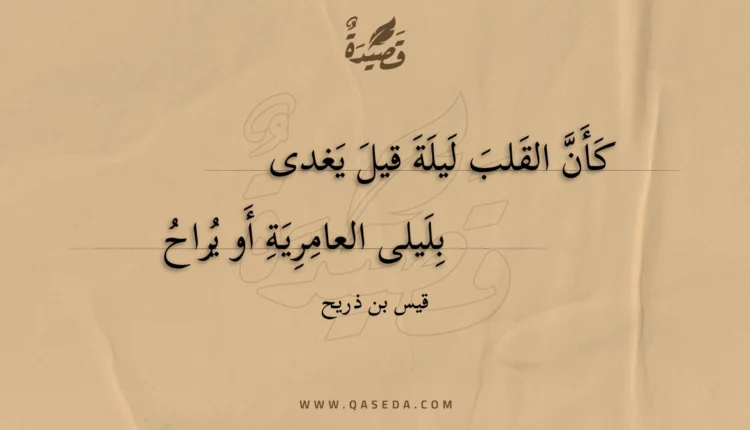 قَصِيدَةٌ
كَأَنَّ القَلبَ لَيلَةَ قيلَ يَغدى
بِلَيلى العامِرِيَةِ أَو يُراحُ
قيس بن ذريح
WWW.QASEDA.COM